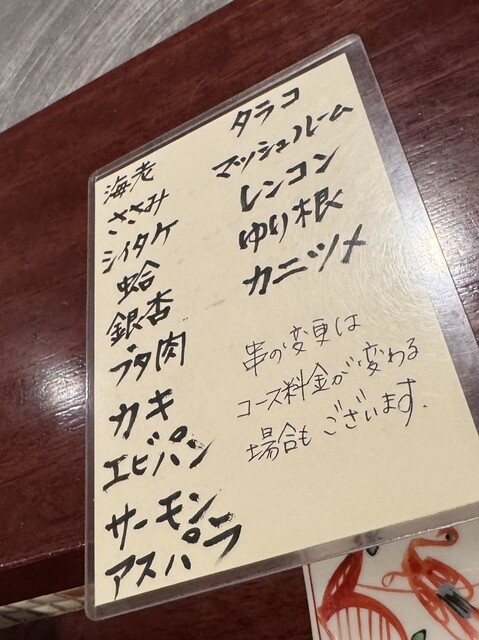 海老
ささみ
シイタケ
蛤
銀杏
ブタ肉
カキ
エビパン
サーモン
アスパラ
タラコ
マッシュルーム
レンコン
ゆり根
カニツメ
串の変更は
コース料金が変わる
場合もございます.